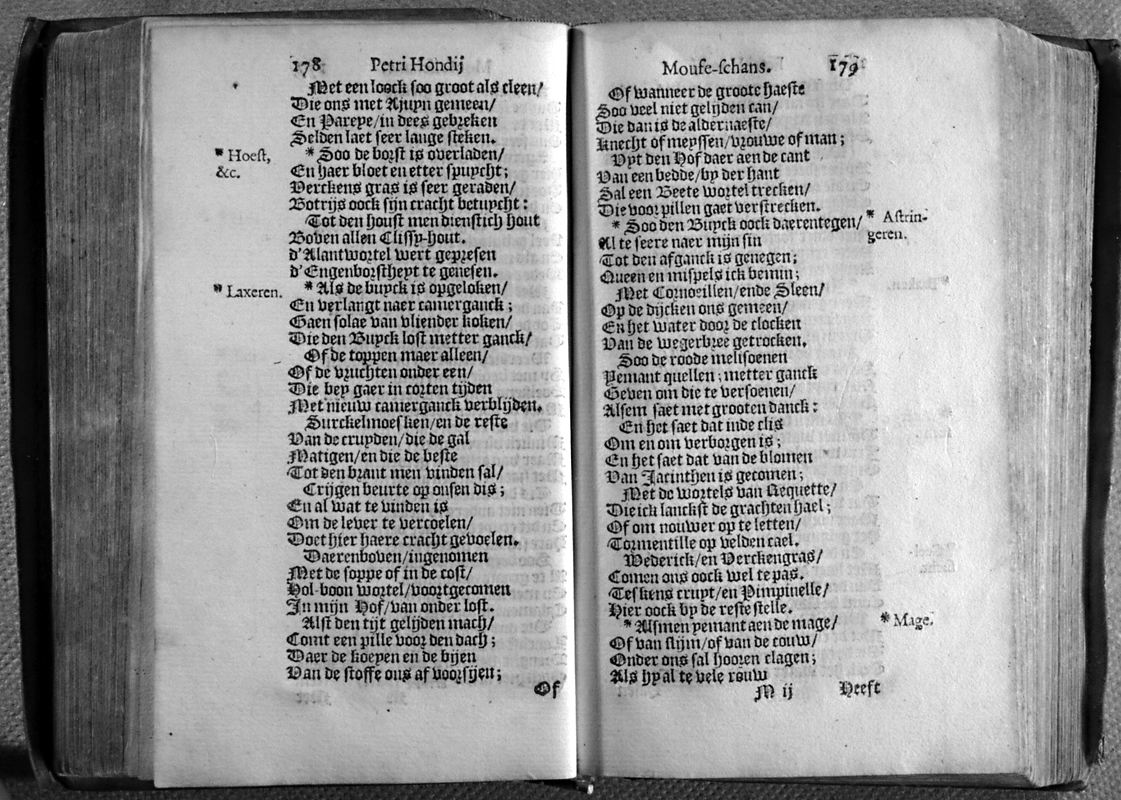 178 Petri Hondij
Met een loock soo groot als cleen/
Die ons met Ajuyn gemeen/
En Pareye/in dees gebreken
Selden laet seer lange steken.
* Hoest, &c.
* Soo de borst is overladen/
En haer bloet en etter spuycht;
Verckens gras is seer geraden/
Botrijs oock sijn cracht betuycht:
Tot den houst men dienstich hout
Boven allen Clissy-hout.
d'Alantwortel wert gepresen
d'Engenborstheyt te genesen.
* Laxeren.
* Als de buyck is opgeloken/
En verlangt naer camerganck;
Gaen solae van vliender koken/
Die den Buyck lost metter ganck/
Of de toppen maer alleen/
Of de vruchten onder een/
Die bey gaer in corten tijden
Met nieuw camerganck verblijden.
Surckelmoesken/en de reste
Van de cruyden/die de gal
Matigen/en die de beste
Tot den brant men vinden sal/
Crijgen beurte op onsen dis;
En al wat te vinden is
Om de lever te vercoelen/
Doet hier haere cracht gevoelen.
Daerenboven/ingenomen
Met de soppe of in de cost/
Hol-boon wortel/voortgecomen
In mijn Hof/van onder lost.
Alst den tijt gelijden mach/
Comt een pille voor den dach;
Daer de koeyen en de bijen
Van de stoffe ons af voorsijen;
Of
Moufe-schans. 179
Of wanneer de groote haeste
Soo veel niet gelijden can/
Die dan is de aldernaeste/
Knecht of meyssen/vrouwe of man;
Vyt den Hof daer aen de cant
Van een bedde/by der hant
Sal een Beete wortel trecken/
Die voor pillen gaet verstrecken.
* Astringeren.
* Soo den Buyck oock daerentegen/
Al te seere naer mijn sin
Tot den afganck is genegen;
Queen en mispels ick bemin;
Met Cornoeillen/ende Sleen/
Op de dijcken ons gemeen/
En het water door de clocken
Van de wegerbree getrocken.
Soo de roode melisoenen
Yemant quellen; metter ganck
Geven om die te versoenen/
Alsem saet met grooten danck:
En het saet dat inde clis
Om en om verborgen is;
En het saet dat van de blomen
Van Jacinthen is gecomen;
Met de wortels van Requette/
Die ick lanckst de grachten hael;
Of om nouwer op te letten/
Tormentille op velden cael.
Wederick/en Verckengras/
Comen ons oock wel te pas.
Teskens cruyt/en Pimpinelle/
Hier oock by de reste stelle.
* Mage.
* Alsmen yemant aen de mage/
Of van slijm/of van de couw/
Onder ons sal hooren clagen;
Als hy al te vele rouw
M ij Heeft